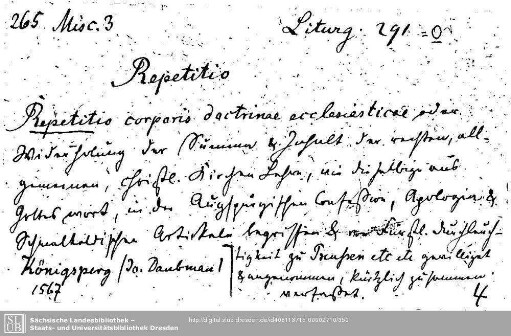 265 Misc. 3 Liturg. 291 = 0
Repetitio
Repetitio corporis doctrinae ecclesiasticae oder
Widerholung der Summa & Inhalt der rechten, all-
gemeinen, christl. Kirchen Lehre, wie dieselbige aus
Gottes wort, in der Augspurgischen Confession, Apologia &
Schmalkaldischen Artickeln begriffen & von Fürstl. Durchleuch-
tigkeit zu Preussen etc etc gewilliget
Königsperg (Jo. Daubman) & angenommen, kürtzlich zusammen
1567 verfasset. 4
Sächsische Landesbibliothek –
Staats- und Universitätsbibliothek Dresden